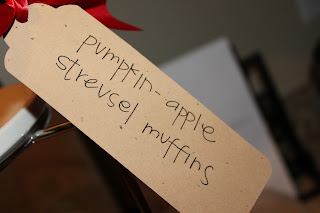 pumpkin-apple
streusel muffins